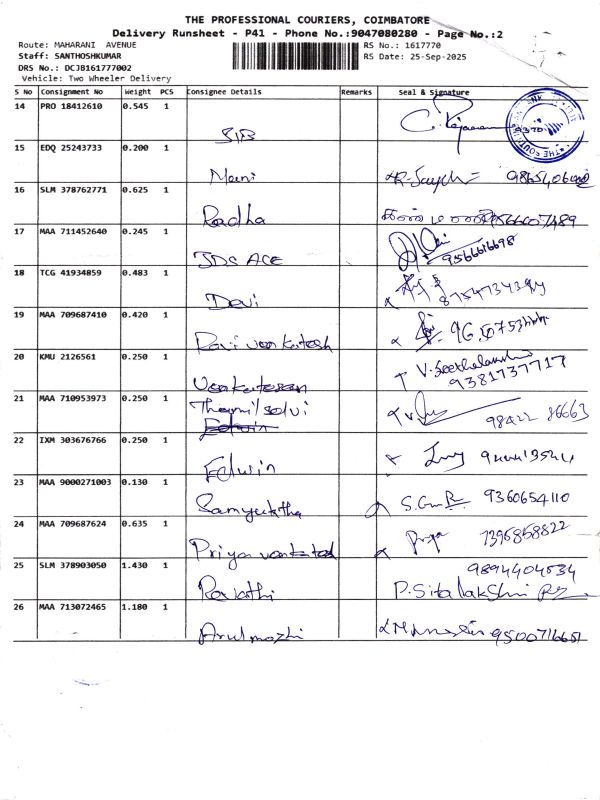 THE PROFESSIONAL COURIERS, COIMBATORE
Delivery Runsheet - P41 - Phone No.:9047080280 - Page No.:2
Route: MAHARANI AVENUE
RS No.: 1617770
Staff: SANTHOSHKUMAR
RS Date: 25-Sep-2025
DRS No.: DCJB161777002
Vehicle: Two Wheeler Delivery
S No Consignment No Weight PCS Consignee Details Remarks Seal & Signature
14 PRO 18412610 0.545 1 SIB
15 EDQ 25243733 0.200 1 Mani
16 SLM 378762771 0.625 1 Radha
17 MAA 711452640 0.245 1 JDS ACE 9566616698
18 TCG 41934859 0.483 1 Devi
19 MAA 709687410 0.420 1 Ravi venkatesh
20 KMU 2126561 0.250 1 Venkatesan 9381737717
21 MAA 710953973 0.250 1 98422 86663
22 IXM 303676766 0.250 1 Edwin
23 MAA 9000271003 0.130 1 Samyuktha 9360654110
24 MAA 709687624 0.635 1 Priya venkatesh Priya 7395858822
25 SLM 378903050 1.430 1 9894404534
P. Sitalakshmi
26 MAA 713072465 1.180 1 Arulmozhi 9500716651